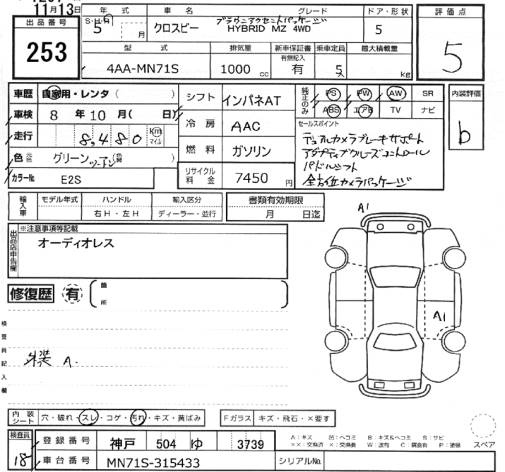 11月13日
出品番号 253
年式 車名 グレード ドア・形状
S・H・R 5年 月 クロスビー ブラウニアクセントパッケージ HYBRID MZ 4WD 5
型式 排気量 新車保証書 乗車定員 最大積載量
4AA-MN71S 1000 cc 有無記入 有 5名 kg
評価点 5
車歴 自家用・レンタ( )
車検 8年10月( 日)
走行 8,480 km マイル
色 グリーン ツートン(替 )
カラーNo. E2S
シフト インパネAT
冷房 AAC
燃料 ガソリン
リサイクル料金 7450 円
純正品のみ PS PW AW SR
ABS エアB TV ナビ
セールスポイント
デュアルカメラブレーキサポート
アダプティブクルーズコントロール
パドルシフト
全方位カメラパッケージ
内装評価 b
輸入車 モデル年式 ハンドル 輸入区分
右H・左H ディーラー・並行
書類有効期限
月 日迄
出品店申告欄 ※注意事項等記載
オーディオレス
修復歴 有 箇所
検査員記入欄
外装 A.
A1
A1
内装シート 穴・破れ・スレ・コゲ・汚れ・キズ・黄ばみ
Fガラス キズ・飛石・×要す
スペア
検査員 18
登録番号 神戸 504 ゆ 3739
車台番号 MN71S-315433 シリアルNo.
A:キズ U:凹ミ B:キズ&ヘコミ S:サビ